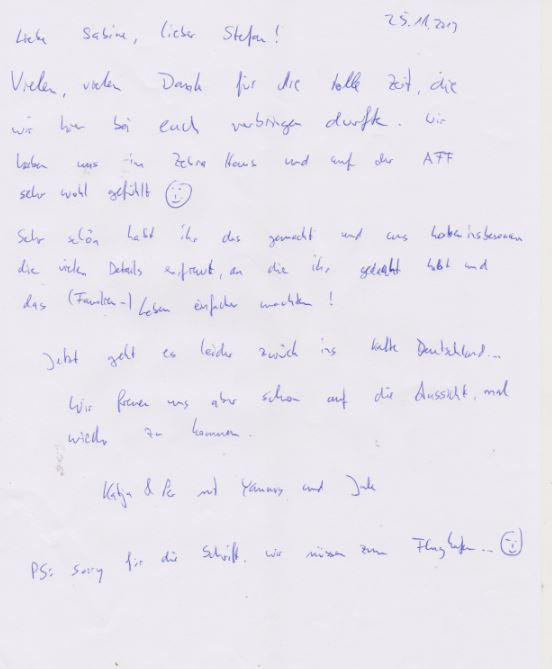 25.11.2019
Liebe Sabine, lieber Stefan!
Vielen, vielen Dank für die tolle Zeit, die
wir hier bei euch verbringen durften. Wir
haben uns im Zebra Haus und auf der AFF
sehr wohl gefühlt
Sehr schön habt ihr das gemacht und uns haben insbesondere
die vielen Details erfreut, an die ihr gedacht habt und
das (Familien-) Leben einfacher machten!
Jetzt geht es leider zurück ins kalte Deutschland...
Wir freuen uns aber schon auf die Aussicht, mal
wieder zu kommen.
Katja & Per mit Yannis und Jule
PS: sorry für die Schrift, wir müssen zum Flughafen...